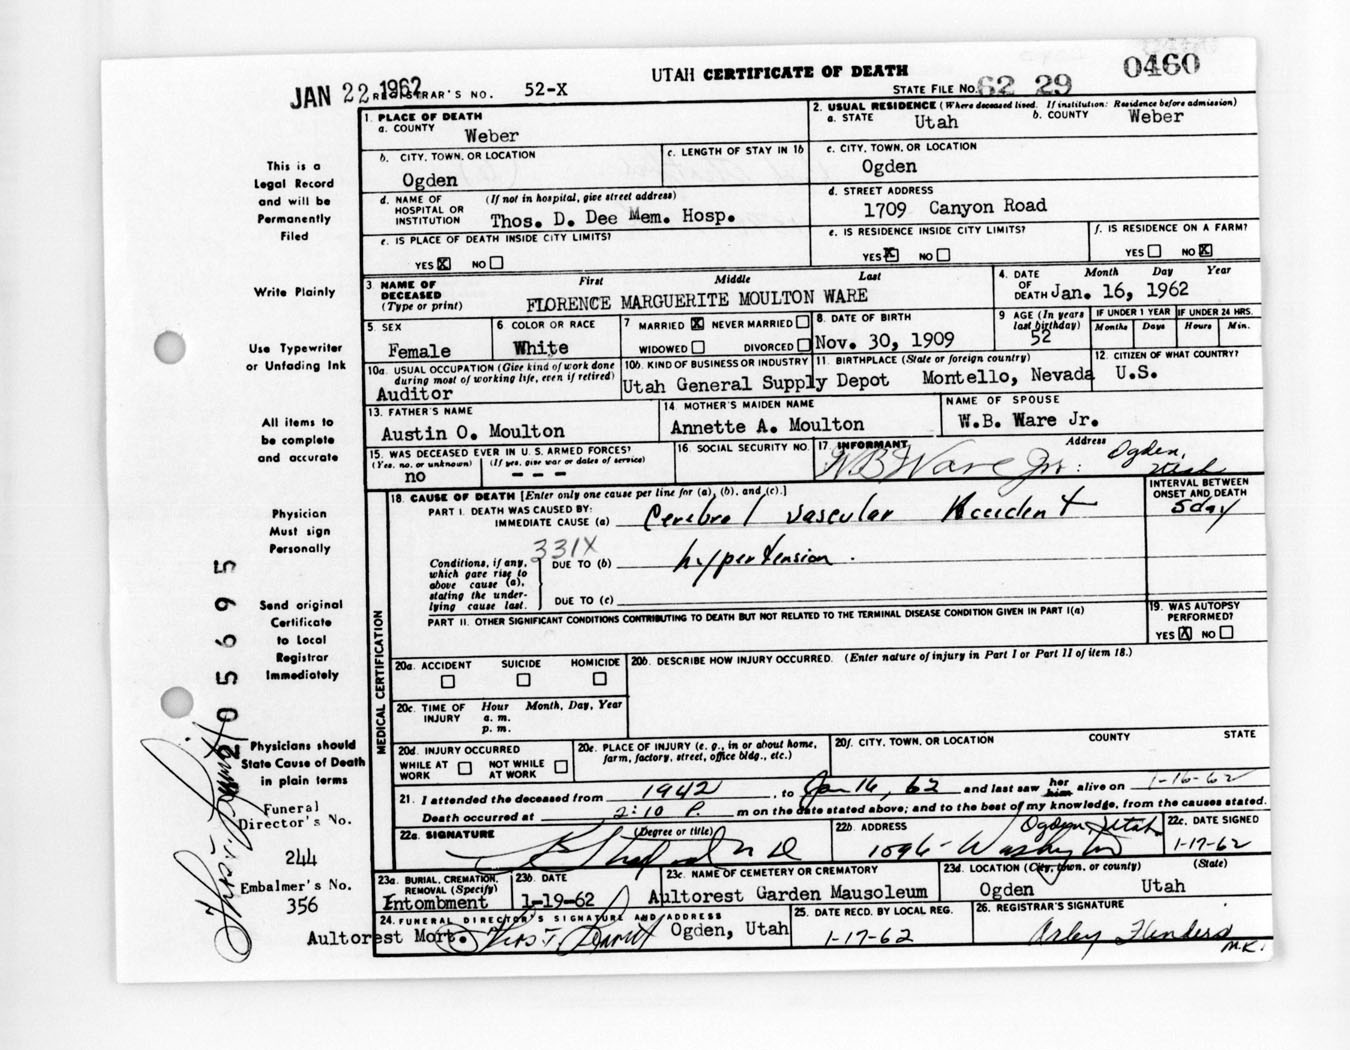 UTAH CERTIFICATE OF DEATH
0460
JAN 22 1962
REGISTRAR'S NO. 52-X
STATE FILE NO. 62 29
This is a
Legal Record
and will be
Permanently
Filed
Write Plainly
Use Typewriter
or Unfading Ink
All items to
be complete
and accurate
Physician
Must sign
Personally
Send original
Certificate
to Local
Registrar
Immediately
Physicians should
State Cause of Death
in plain terms
Funeral
Director's No.
244
Embalmer's No.
356
205695
1. PLACE OF DEATH
a. COUNTY Weber
2. USUAL RESIDENCE (Where deceased lived. If institution: Residence before admission)
a. STATE Utah b. COUNTY Weber
b. CITY, TOWN, OR LOCATION Ogden
c. LENGTH OF STAY IN 1b
c. CITY, TOWN, OR LOCATION
Ogden
d. NAME OF HOSPITAL OR INSTITUTION (If not in hospital, give street address)
Thos. D. Dee Mem. Hosp.
d. STREET ADDRESS
1709 Canyon Road
e. IS PLACE OF DEATH INSIDE CITY LIMITS?
YES X NO
e. IS RESIDENCE INSIDE CITY LIMITS?
YES X NO
f. IS RESIDENCE ON A FARM?
YES NO X
3 NAME OF DECEASED (Type or print) First Middle Last
FLORENCE MARGUERITE MOULTON WARE
4. DATE OF DEATH Month Day Year
Jan. 16, 1962
5. SEX
Female
6. COLOR OR RACE
White
7 MARRIED X NEVER MARRIED
WIDOWED DIVORCED
8. DATE OF BIRTH
Nov. 30, 1909
9 AGE (In years last birthday)
52
IF UNDER 1 YEAR IF UNDER 24 HRS.
Months Days Hours Min.
10a. USUAL OCCUPATION (Give kind of work done during most of working life, even if retired)
Auditor
10b. KIND OF BUSINESS OR INDUSTRY
Utah General Supply Depot
11. BIRTHPLACE (State or foreign country)
Montello, Nevada
12. CITIZEN OF WHAT COUNTRY?
U.S.
13. FATHER'S NAME
Austin O. Moulton
14 MOTHER'S MAIDEN NAME
Annette A. Moulton
NAME OF SPOUSE
W.B. Ware Jr.
15. WAS DECEASED EVER IN U.S. ARMED FORCES?
(Yes, no, or unknown) (If yes, give war or dates of service)
no - - -
16 SOCIAL SECURITY NO.
17. INFORMANT Address
W B Ware Jr. Ogden, Utah
18. CAUSE OF DEATH [Enter only one cause per line for (a), (b), and (c).]
INTERVAL BETWEEN ONSET AND DEATH
PART I. DEATH WAS CAUSED BY:
IMMEDIATE CAUSE (a) Cerebral vascular Accident
5 day
331X
Conditions, if any, which gave rise to above cause (a), stating the underlying cause last.
DUE TO (b) hypertension.
DUE TO (c)
PART II. OTHER SIGNIFICANT CONDITIONS CONTRIBUTING TO DEATH BUT NOT RELATED TO THE TERMINAL DISEASE CONDITION GIVEN IN PART I(a)
19. WAS AUTOPSY PERFORMED?
YES X NO
MEDICAL CERTIFICATION
20a. ACCIDENT SUICIDE HOMICIDE
20b. DESCRIBE HOW INJURY OCCURRED. (Enter nature of injury in Part I or Part II of item 18.)
20c. TIME OF INJURY Hour Month, Day, Year
a. m.
p. m.
20d. INJURY OCCURRED
WHILE AT WORK NOT WHILE AT WORK
20e. PLACE OF INJURY (e. g., in or about home, farm, factory, street, office bldg., etc.)
20f. CITY, TOWN, OR LOCATION COUNTY STATE
21. I attended the deceased from 1942, to Jan 16, 62 and last saw her him alive on 1-16-62
Death occurred at 2:10 P. m on the date stated above; and to the best of my knowledge, from the causes stated.
22a. SIGNATURE (Degree or title)
M D
22b. ADDRESS Ogden, Utah
Washington
22c. DATE SIGNED
1-17-62
23a. BURIAL, CREMATION, REMOVAL (Specify)
Entombment
23b. DATE
1-19-62
23c. NAME OF CEMETERY OR CREMATORY
Aultorest Garden Mausoleum
23d. LOCATION (City, town, or county) (State)
Ogden Utah
24. FUNERAL DIRECTOR'S SIGNATURE AND ADDRESS
Aultorest Mort. Ogden, Utah
25. DATE RECD. BY LOCAL REG.
1-17-62
26. REGISTRAR'S SIGNATURE
M.K.